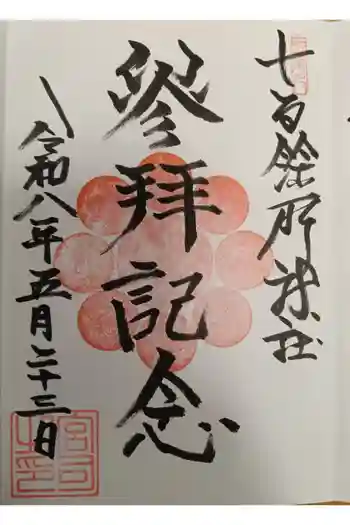 七百餘所神社
參拜記念
令和八年五月二十三日
宮司之印